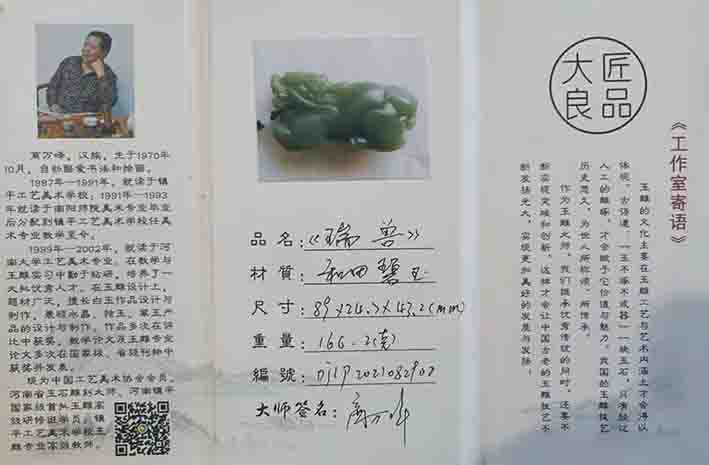 高万峰，汉族，生于1970年
10月，自幼酷爱书法和绘画。
1987年—1991年，就读于镇
平工艺美术学校；1991年—1993
年就读于南阳师院美术专业毕业
后分配到镇平工艺美术学校任美
术专业教学至今。
1999年—2002年，就读于河
南大学工艺美术专业。在教学与
玉雕实习中勤于钻研，培养了一
大批优秀人才。在玉雕设计上，
题材广泛，擅长白玉作品设计与
制作，兼顾水晶、独玉、翠玉产
品的设计与制作，作品多次在评
比中获奖，教学论文及玉雕专业
论文多次在国家级、省级刊物中
获奖并发表。
现为中国工艺美术协会会员，
河南省玉石雕刻大师，河南镇平
国家级首批玉雕高
级研修班学员，镇
平工艺美术学校玉
雕专业高级教师。
品名：《瑞兽》
材質：和田碧玉
尺寸：89×24.3×43.2(mm)
重量：166.2(克)
編號：202108290
大师签名：高万峰
大匠
良品
《工作室寄语》
玉雕的文化主要在玉雕工艺与艺术内涵上才会得以
体现，古语道：一玉不琢不成器一一块玉石，只有经过
人工的雕琢，才会赋予它价值与魅力。我国的玉雕技艺
历史悠久，为世人所称颂、所传承。
作为玉雕大师，我们继承优秀传统的同时，还要不
断实现突破和创新，这样才会让中国古老的玉雕技艺不
断发扬光大，实现更加美好的发展与发扬。